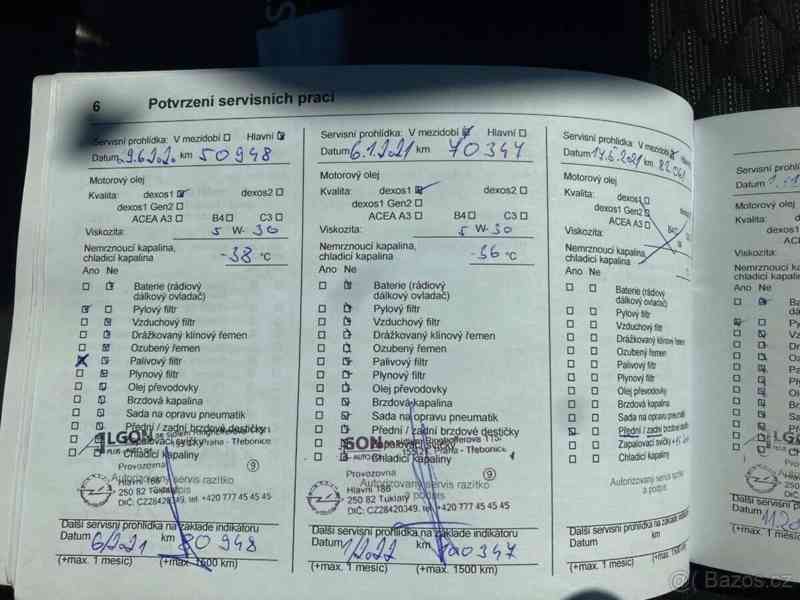 6 Potvrzení servisních prací
Servisní prohlídka: V mezidobí Hlavní
Datum 9.6.2020 km 50948
Motorový olej
Kvalita: dexos1 dexos2
dexos1 Gen2
ACEA A3 B4 C3
Viskozita: 5 W- 30
Nemrznoucí kapalina,
chladicí kapalina -38 °C
Ano Ne
Baterie (rádiový
dálkový ovladač)
Pylový filtr
Vzduchový filtr
Drážkovaný klínový řemen
Ozubený řemen
Palivový filtr
Plynový filtr
Olej převodovky
Brzdová kapalina
Sada na opravu pneumatik
Přední / zadní brzdové destičky
Zapalovací svíčky
Chladicí kapaliny
LGON
Praha - Třebonice
Provozovna
9
Autorizovaný servis razítko
Hlavní 186
250 82 Tuklaty
DIČ: CZ28420349, tel. +420 777 45 45 45
Další servisní prohlídka na základě indikátoru
Datum 6/2021 km 80948
(+max. 1 měsíc) (+max. 1500 km)
Servisní prohlídka: V mezidobí Hlavní
Datum 6.1.2021 km 70347
Motorový olej
Kvalita: dexos1 dexos2
dexos1 Gen2
ACEA A3 B4 C3
Viskozita: 5 W- 30
Nemrznoucí kapalina,
chladicí kapalina -36 °C
Ano Ne
Baterie (rádiový
dálkový ovladač)
Pylový filtr
Vzduchový filtr
Drážkovaný klínový řemen
Ozubený řemen
Palivový filtr
Plynový filtr
Olej převodovky
Brzdová kapalina
Sada na opravu pneumatik
Přední / zadní brzdové destičky
Zapalovací svíčky
Chladicí kapaliny
GON
Praha - Třebonice
Provozovna
9
Autorizovaný servis razítko
a podpis
Hlavní 186
250 82 Tuklaty
DIČ: CZ28420349, tel. +420 777 45 45 45
Další servisní prohlídka na základě indikátoru
Datum 1/2022 km 100347
(+max. 1 měsíc) (+max. 1500 km)
Servisní prohlídka: V mezidobí Hlavní
Datum 17.6.2021 km 82061
Motorový olej
Kvalita: dexos1 dexos2
dexos1 Gen2
ACEA A3
Viskozita:
Nemrznoucí kapalina,
chladicí kapalina
Ano Ne
Baterie (rádiový
dálkový ovladač)
Pylový filtr
Vzduchový filtr
Drážkovaný klínový řemen
Ozubený řemen
Palivový filtr
Plynový filtr
Olej převodovky
Brzdová kapalina
Sada na opravu pneumatik
Přední / zadní brzdové
Zapalovací svíčky
Chladicí kapaliny
Autorizovaný servis
a podpis
Další servisní prohlídka na základě indikátoru
Datum km
(+max. 1 měsíc) (+max. 1500 km)
Servisní
Datum
Motorový
Kvalita:
dexos1
Viskozita:
Nemrznoucí
chladicí kapalina
Ano Ne
Další servisní
Datum
(+max. 1
Bazos.cz